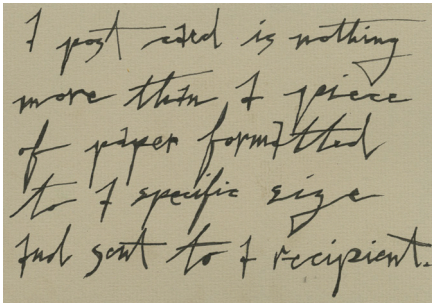 A post card is nothing
more than a piece
of paper formatted
to a specific size
and sent to a recipient.